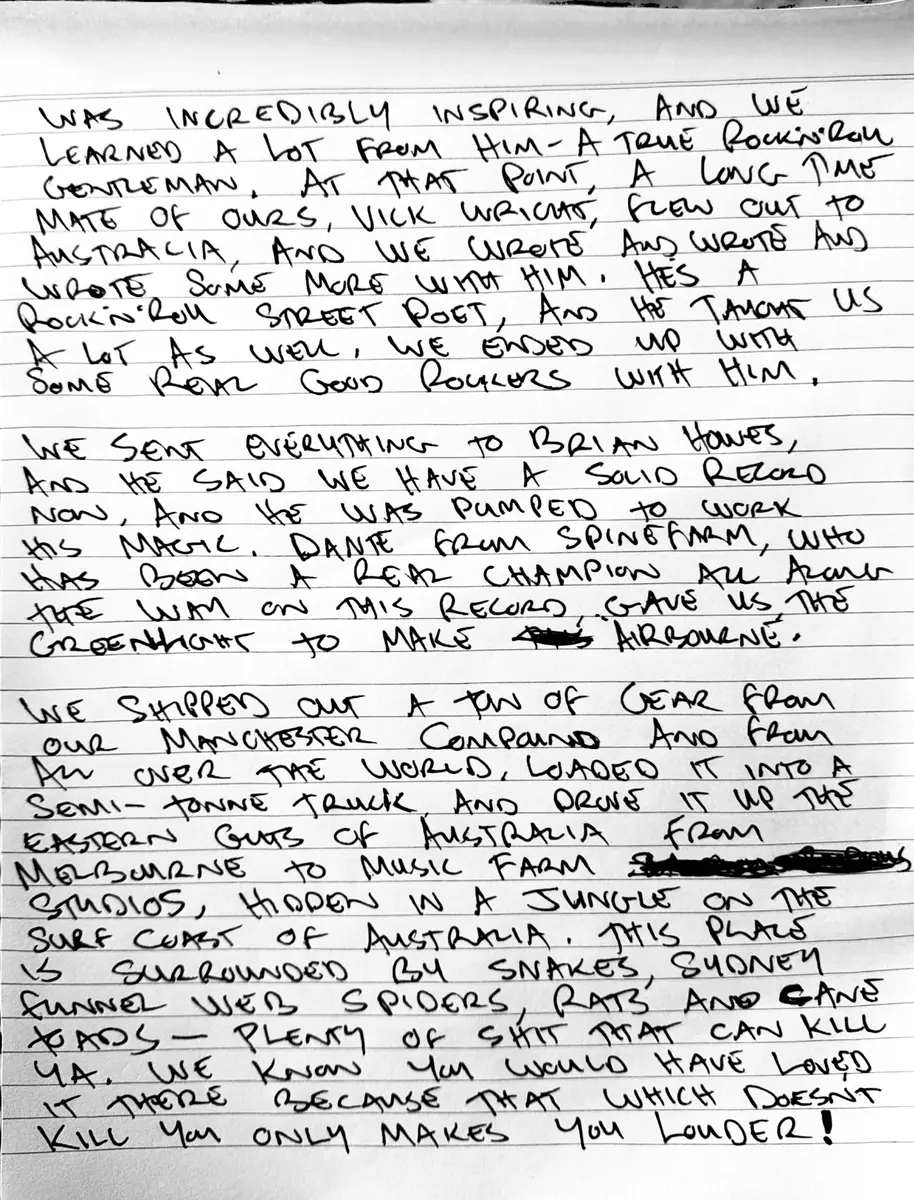 WAS INCREDIBLY INSPIRING, AND WE
LEARNED A LOT FROM HIM - A TRUE ROCK'N'ROLL
GENTLEMAN. AT THAT POINT, A LONG TIME
MATE OF OURS, VICK WRIGHT, FLEW OUT TO
AUSTRALIA, AND WE WROTE AND WROTE AND
WROTE SOME MORE WITH HIM. HES A
ROCK'N'ROLL STREET POET, AND HE TAUGHT US
A LOT AS WELL. WE ENDED UP WITH
SOME REAL GOOD ROCKERS WITH HIM.
WE SENT EVERYTHING TO BRIAN HOWES,
AND HE SAID WE HAVE A SOLID RECORD
NOW, AND HE WAS PUMPED TO WORK
HIS MAGIC. DANTE FROM SPINEFARM, WHO
HAS BEEN A REAL CHAMPION ALL ALONG
THE WAY ON THIS RECORD, GAVE US THE
GREENLIGHT TO MAKE AIRBOURNE.
WE SHIPPED OUT A TON OF GEAR FROM
OUR MANCHESTER COMPOUND AND FROM
ALL OVER THE WORLD, LOADED IT INTO A
SEMI-TONNE TRUCK AND DROVE IT UP THE
EASTERN GUTS OF AUSTRALIA FROM
MELBOURNE TO MUSIC FARM
STUDIOS, HIDDEN IN A JUNGLE ON THE
SURF COAST OF AUSTRALIA. THIS PLACE
IS SURROUNDED BY SNAKES, SYDNEY
FUNNEL WEB SPIDERS, RATS AND CANE
TOADS - PLENTY OF SHIT THAT CAN KILL
YA. WE KNOW YOU WOULD HAVE LOVED
IT THERE BECAUSE THAT WHICH DOESN'T
KILL YOU ONLY MAKES YOU LOUDER!